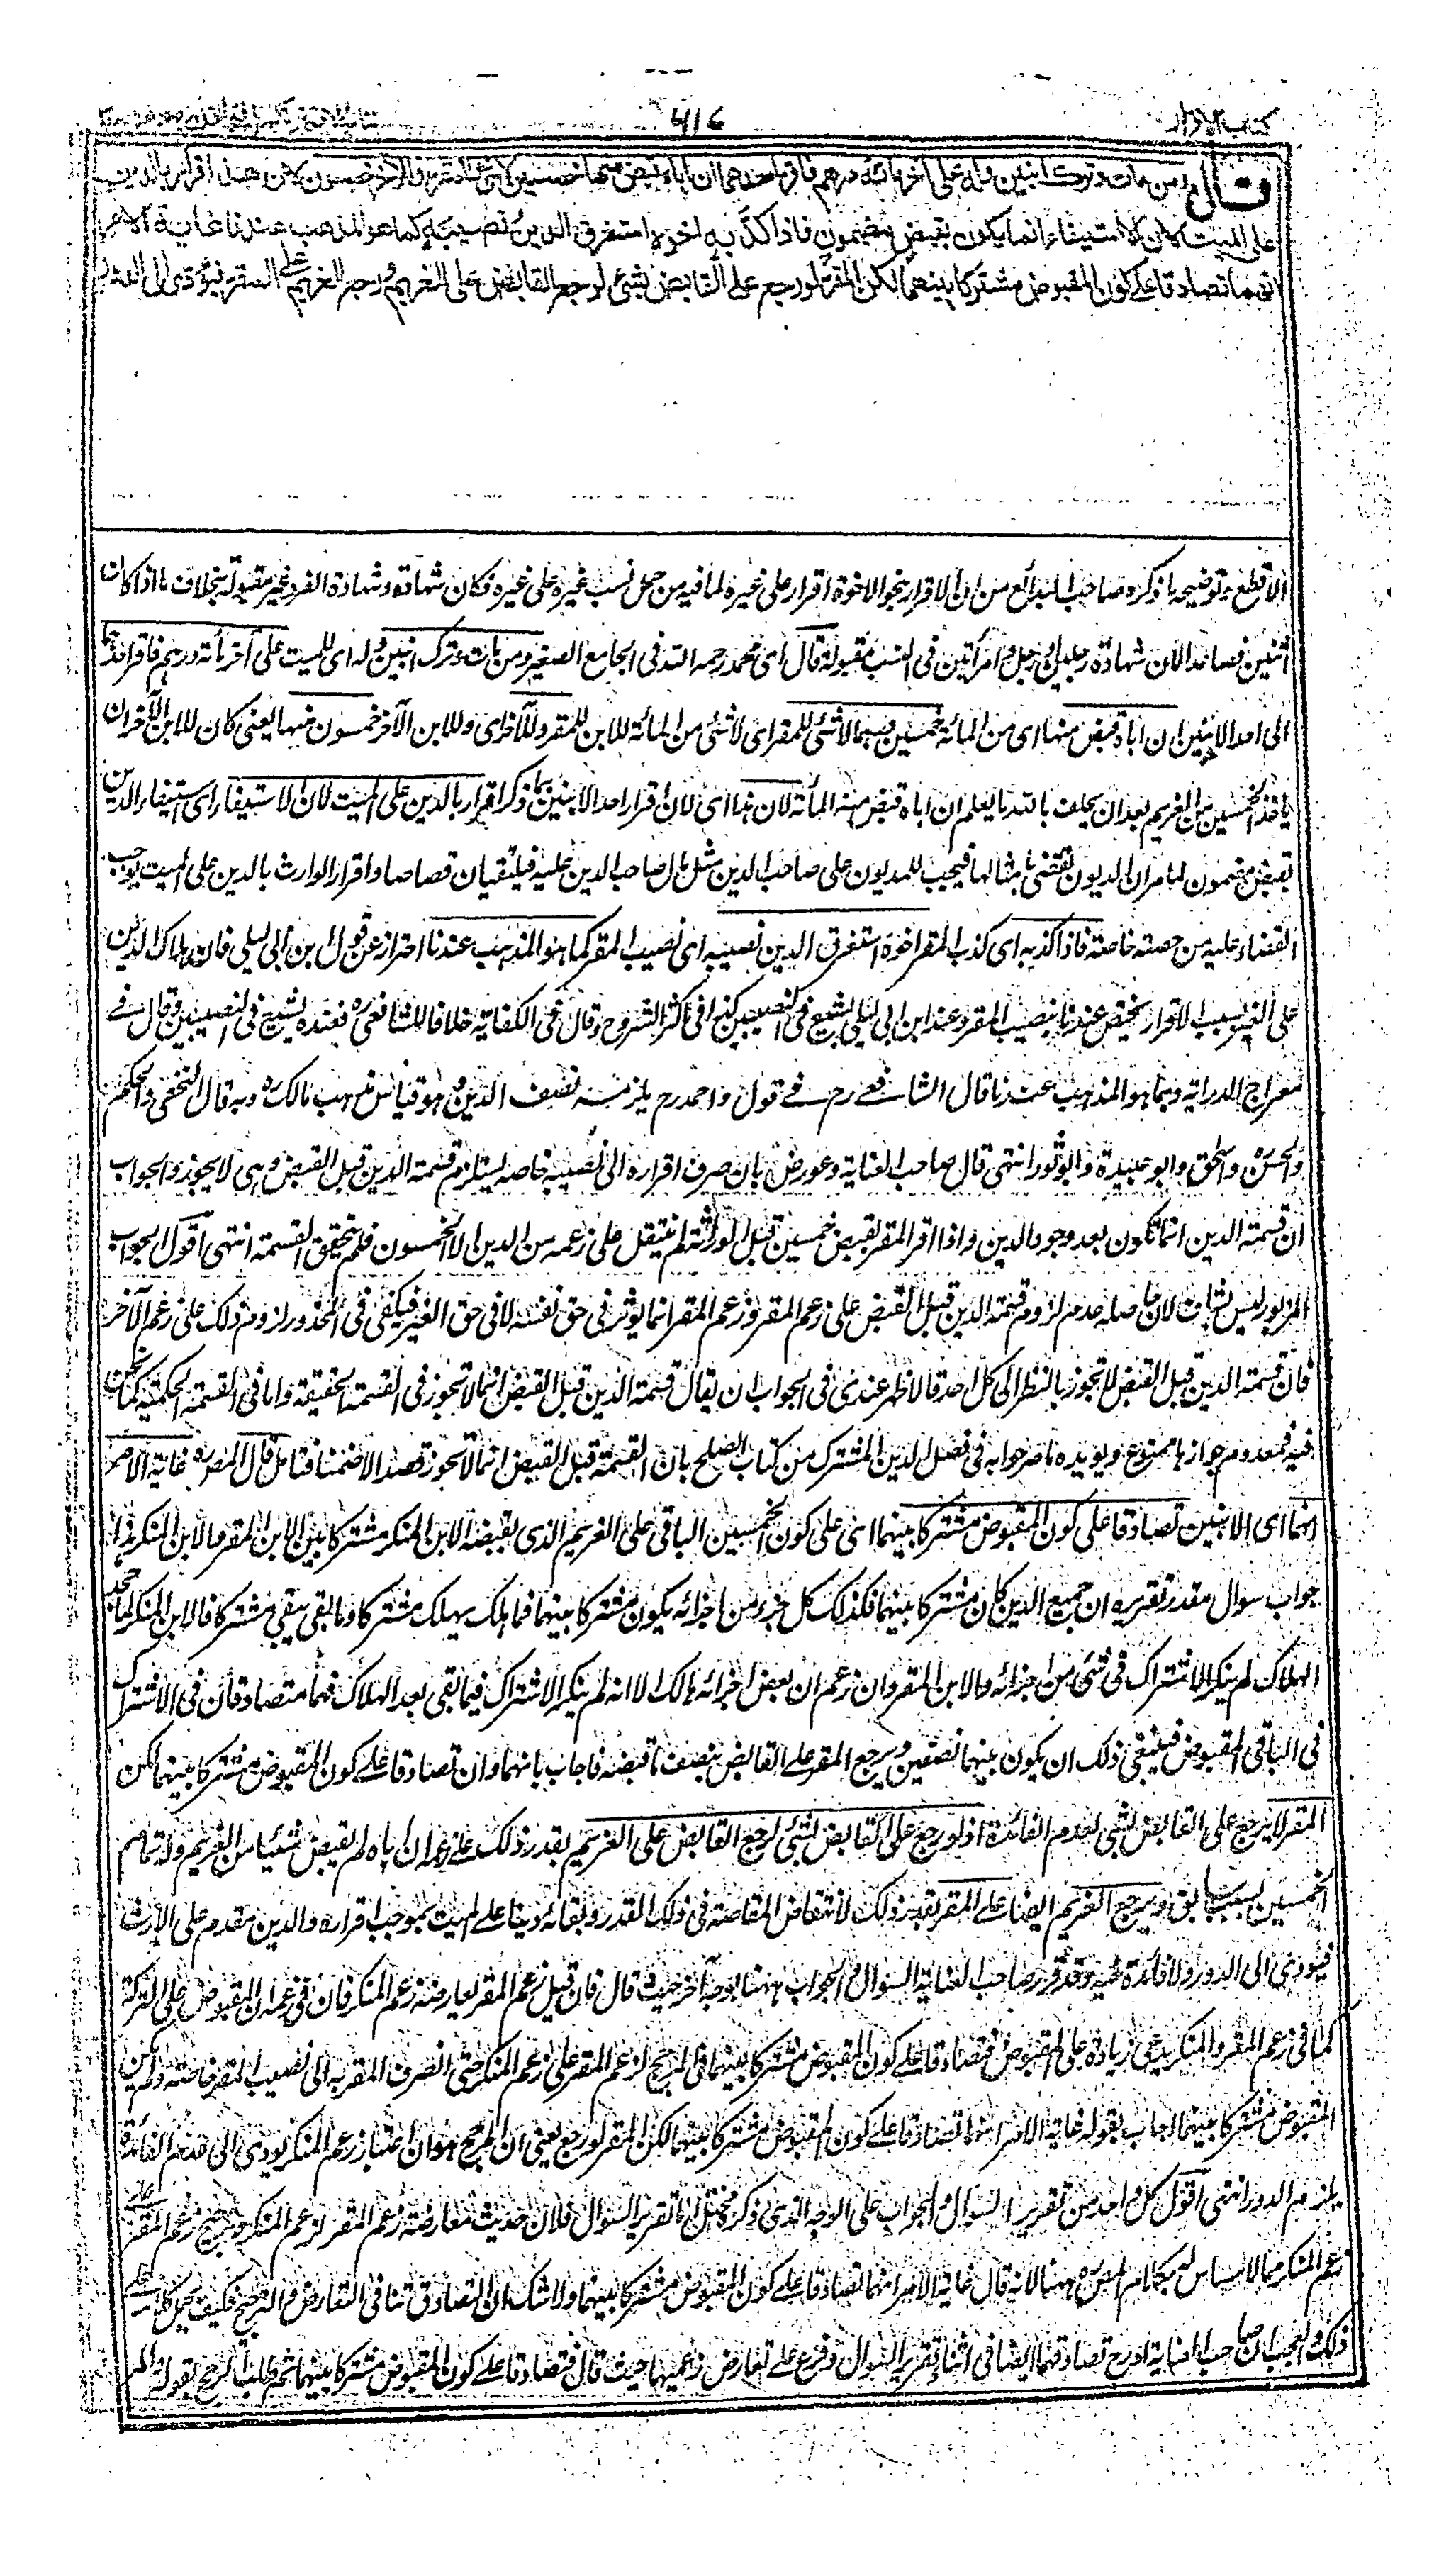 كتاب الاقرار
قال ومن مات وترك ابنين وله على آخر مائة درهم فاقر احدهما ان اباه قبض منها خمسين لا شئ للمقر وللآخر خمسون لان هذا اقرار بالدين
على الميت لان الاستيفاء انما يكون بقبض مضمون فاذا كذبه اخوه استغرق الدين نصيبه كما هو المذهب عندنا غاية الامر
انهما تصادقا على كون المقبوض مشتركا بينهما لكن المقر لو رجع على القابض بشئ لرجع القابض على الغريم ورجع الغريم على المقر فيؤدى الى الدور
الاقطع وتوضيحه ما ذكره صاحب البدائع من ان الاقرار بنحو الاخوة اقرار على غيره لما فيه من حمل نسب غيره على غيره فكان شهادة وشهادة الفرد غير مقبولة بخلاف ما اذا كان
اثنين فصاعدا لان شهادة رجلين او رجل وامرأتين فى النسب مقبولة قال اى محمد رحمه الله فى الجامع الصغير ومن مات وترك ابنين وله اى للميت على آخر مائة درهم فاقر احدهما
اى احد الابنين ان اباه قبض منها اى من المائة خمسين درهما لا شئ للمقر اى لا شئ من المائة للابن المقر وللآخر اى وللابن الآخر خمسون منها يعنى كان للابن الآخر ان
ياخذ الخمسين من الغريم بعد ان يحلف بالله ما يعلم ان اباه قبض منه المائة لان هذا اى لان اقرار احد الابنين بما ذكر اقرار بالدين على الميت لان الاستيفاء اى استيفاء الدين
بقبض مضمون لما مر ان الديون تقضى بامثالها فيجب للمديون على صاحب الدين مثل ما لصاحب الدين عليه فيلتقيان قصاصا واقرار الوارث بالدين على الميت يوجب
القضاء عليه من حصته خاصة فاذا كذبه اى كذب المقر اخوه استغرق الدين نصيبه اى نصيب المقر كما هو المذهب عندنا احتراز عن قول ابن ابى ليلى فان هلاك الدين
على الغير بسبب الاقرار يختص عندنا بنصيب المقر وعند ابن ابى ليلى يشيع فى النصيبين كذا فى اكثر الشروح وقال فى الكفاية خلافا للشافعى ره فعنده يشيع فى النصيبين وقال فے
معراج الدراية وبما هو المذهب عندنا قال الشافعے رح فے قول واحمد رح يلزمه نصف الدين وهو قياس مذهب مالك ره وبه قال النخعى والحكم
والحسن واسحق وابو عبيدة وابو ثور انتهى قال صاحب العناية وعورض بان صرف اقراره الى نصيبه خاصة يستلزم قسمة الدين قبل القبض وهى لا يجوز والجواب
ان قسمة الدين انما تكون بعد وجود الدين واذا اقر المقر بقبض خمسين قبل الوراثة لم ينتقل على زعمه من الدين الا الخمسون فلم يتحقق القسمة انتهى اقول الجواب
المزبور ليس بشاف لان حاصله عدم لزوم قسمة الدين قبل القبض على زعم المقر وزعم المقر انما يؤثر فى حق نفسه لا فى حق الغير فيكفى فى المحذور لزوم ذلك على زعم الآخر
فان قسمة الدين قبل القبض لا تجوز بالنظر الى كل احد فالاظهر عندى فى الجواب ان يقال قسمة الدين قبل القبض انما لا تجوز فى القسمة الحقيقة واما فى القسمة الحكمية كما نحن
فيه فعدم جوازها ممنوع ويؤيده ما صرحوا به فى فصل الدين المشترك من كتاب الصلح بان القسمة قبل القبض انما لا تجوز قصدا لا ضمنا فتامل قال المص ره غاية الامر
انهما اى الابنين تصادقا على كون المقبوض مشتركا بينهما اى على كون الخمسين الباقى على الغريم الذى يقبضه الابن المنكر مشتركا بين الابن المقر والابن المنكر هذا
جواب سوال مقدر تقريره ان جميع الدين كان مشتركا بينهما فكذلك كل جزء من اجزائه يكون مشتركا بينهما فما هلك يهلك مشتركا وما بقى يبقى مشتركا فالابن المنكر لما جحد
الهلاك لم ينكر الاشتراك فى شئ من اجزائه والابن المقر وان زعم ان بعض اجزائه هالك الا انه لم ينكر الاشتراك فيما بقى بعد الهلاك فهما متصادقان فى الاشتراك
فى الباقى المقبوض فينبغى ذلك ان يكون بينهما نصفين ويرجع المقر على القابض بنصف ما قبضه فاجاب بانهما وان تصادقا علے كون المقبوض مشتركا بينهما لكن
المقر لا يرجع على القابض بشئ لعدم الفائدة اذ لو رجع على القابض بشئ لرجع القابض على الغريم بقدر ذلك علے زعم ان اباه لم يقبض شيئا من الغريم وله تمام
الخمسين بسبب سابق ويرجع الغريم ايضا علے المقر بقدر ذلك لانتقاض المقاصة فى ذلك القدر وبقائه دينا علے الميت بموجب اقراره والدين مقدم على الارث
فيؤدى الى الدور ولا فائدة فيه وقد قرر صاحب العناية السوال والجواب ههنا بوجه آخر حيث قال فان قيل زعم المقر يعارضه زعم المنكر فان فى زعمه ان المقبوض على التركة
كما فى زعم المقر والمنكر يدعى زيادة على المقبوض فتصادقا علے كون المقبوض مشتركا بينهما فما المرجح لزعم المقر على زعم المنكر حتى انصرف المقر به الى نصيب المقر خاصة ولم يكن
المقبوض مشتركا بينهما اجاب بقوله غاية الامر انهما تصادقا علے كون المقبوض مشتركا بينهما لكن المقر لو رجع يعنى ان المرجح هو ان اعتبار زعم المنكر يؤدى الى عدم الفائدة
يلزم الدور انتهى اقول كل واحد من تقرير السوال والجواب على الوجه الذى ذكره مختل اما تقرير السوال فلان حديث معارضة زعم المقر لزعم المنكر وترجيح زعم المقر علے
زعم المنكر مما لا مساس له بكلام المص ره ههنا لانه قال غاية الامر انهما تصادقا علے كون المقبوض مشتركا بينهما ولا شك ان التصادق تنافى التعارض والترجيح فكيف يحمل كلامه علے
ذلك والعجب ان صاحب العناية ادرج تصادقهما ايضا فى اثناء تقرير السوال وفرع علے تعارض زعميهما حيث قال فتصادقا علے كون المقبوض مشتركا بينهما ثم طلب المرجح بقوله فما